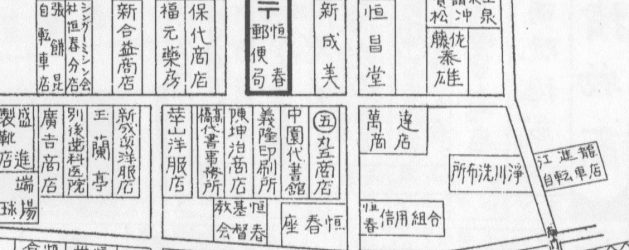 張錦昆自転車店
シンガーミシン会社恒春分店
新合益商店
福元藥房
保代商店
〒恒春郵便局
新成美
恒昌堂
佐藤泰雄
盛進製靴店
廣吉商店
別後歯科医院
玉蘭亭
新成茂洋服店
華山洋服店
代書事務所
陳坤治商店
義隆印刷所
中園代書館
五丸五商店
萬達商店
淨川洗布所
江進龍自転車店
端陽球
恒春基督教会
恒春座
恒春信用組合